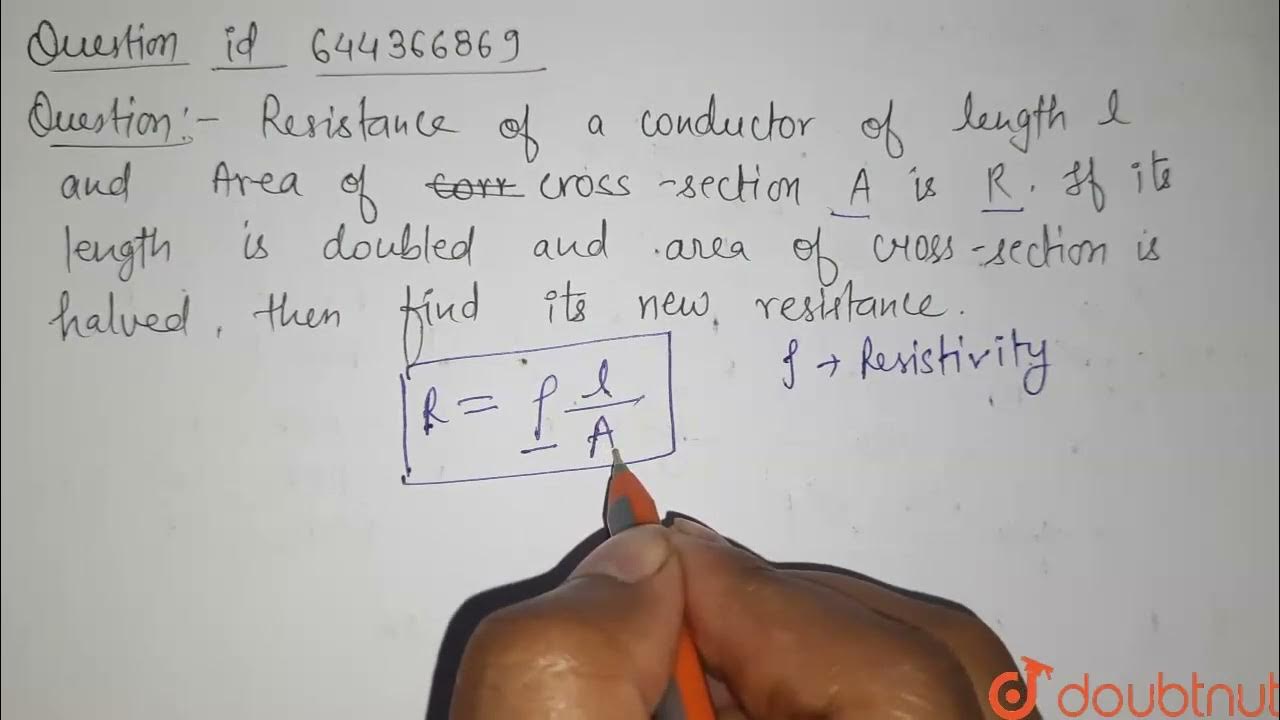 Question id 644366869
Question:- Resistance of a conductor of length l
and Area of corr cross-section A is R. If its
length is doubled and area of cross-section is
halved, then find its new resistance.
ρ → Resistivity
R = ρ l/A
doubtnut